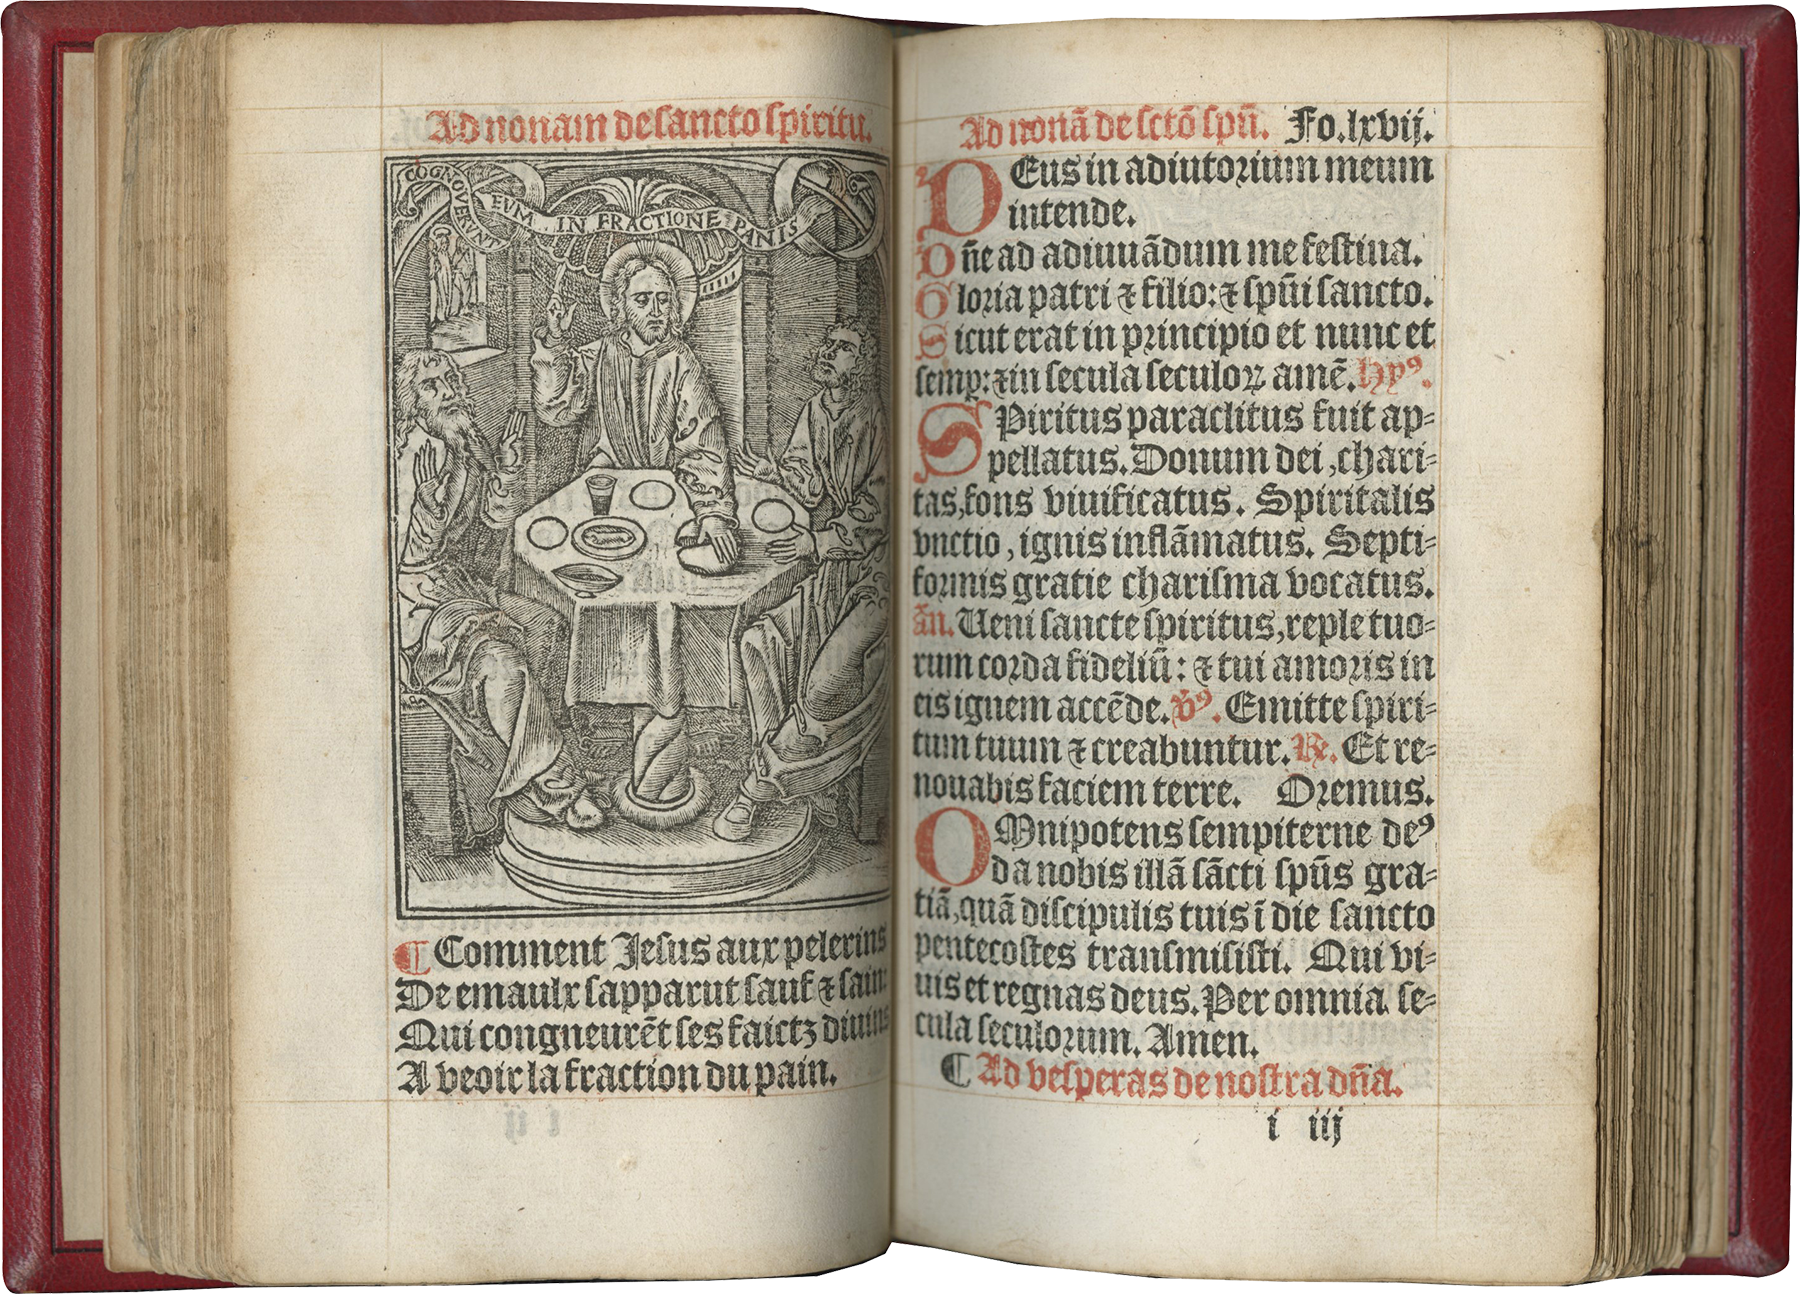 Ad nonam de sancto spiritu.
COGNOVERUNT EVM IN FRACTIONE PANIS
¶ Comment Jesus aux pelerins
De emaulx sapparut sauf ⁊ sain
Qui congneurẽt ses faictz diuins
A veoir la fraction du pain.
Ad nonã de sctõ spũ. Fo.lxvij.
DEus in adiutorium meum
intende.
Dñe ad adiuuãdum me festina.
Gloria patri ⁊ filio: ⁊ spũi sancto.
Sicut erat in principio et nunc et
semꝑ: ⁊ in secula seculoꝝ amẽ. Hyꝰ.
SPiritus paraclitus fuit ap-
pellatus. Donum dei, chari-
tas, fons viuificatus. Spiritalis
vnctio, ignis inflãmatus. Septi-
formis gratie charisma vocatus.
ãn. Ueni sancte spiritus, reple tuo-
rum corda fideliũ: ⁊ tui amoris in
eis ignem accẽde. v̾ꝰ. Emitte spiri-
tum tuum ⁊ creabuntur. ℟. Et re-
nouabis faciem terre. Oremus.
OMnipotens sempiterne deꝰ
da nobis illã sãcti spũs gra-
tiã, quã discipulis tuis ĩ die sancto
pentecostes transmisisti. Qui vi-
uis et regnas deus. Per omnia se-
cula seculorum. Amen.
¶ Ad vesperas de nostra dña.
i iij